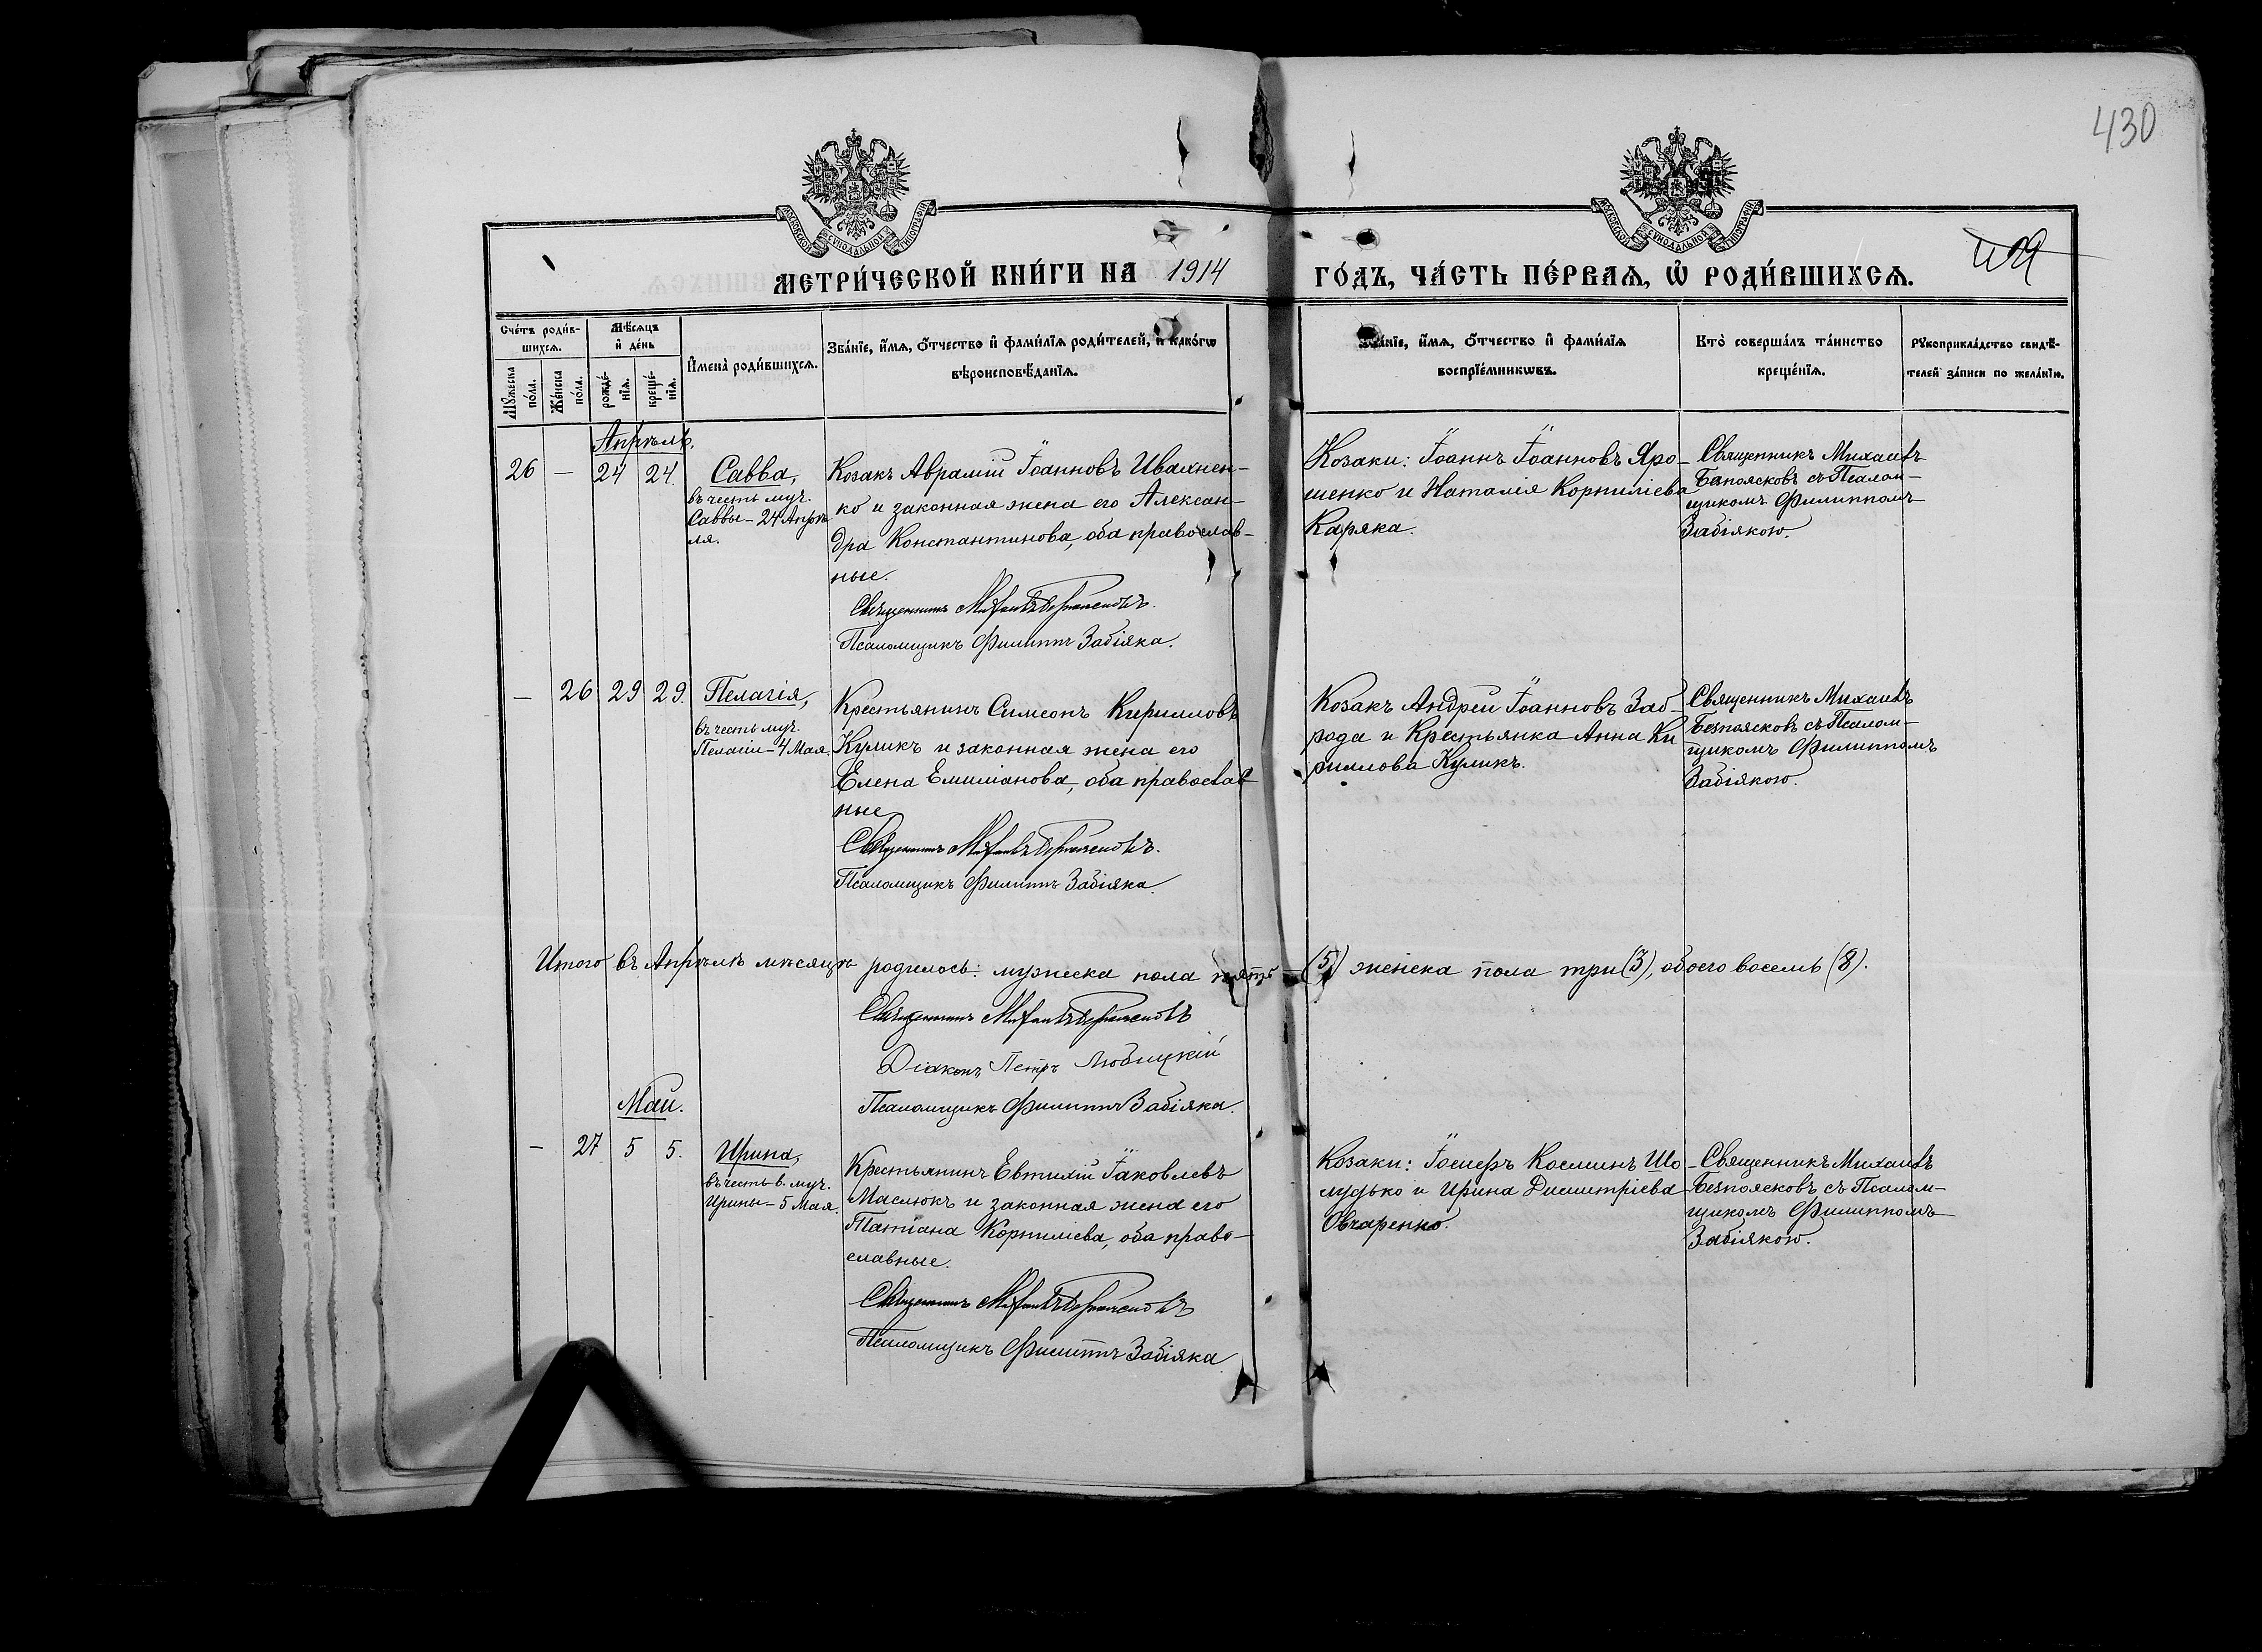 430
429
МОСКОВСКОЙ СѴНОДАЛЬНОЙ ТИПОГРАФІИ
МОСКОВСКОЙ СѴНОДАЛЬНОЙ ТИПОГРАФІИ
МЕТРИ́ЧЕСКОЙ КНИ́ГИ НА 1914 ГО́ДЪ, ЧА́СТЬ ПЕ́РВАѦ, Ѡ҆ РОДИ́ВШИХСѦ.
Сче́тъ роди́в-
шихсѧ.
Мꙋ́жеска
по́ла.
Же́нска
по́ла.
Мѣ́сѧцъ
и҆ де́нь
рожде́-
нїѧ.
креще́-
нїѧ.
И҆мена̀ роди́вшихсѧ.
Зва́нїе, и҆́мѧ, ѻ҆́тчество и҆ фами́лїѧ роди́телей, и҆ како́гѡ
вѣроисповѣ́данїѧ.
Зва́нїе, и҆́мѧ, ѻ҆́тчество и҆ фами́лїѧ
воспрїе́мникѡвъ.
Кто̀ соверша́лъ та́инство
креще́нїѧ.
Рꙋкоприкла́дство свидѣ́-
телей за́писи по жела́нїю.
Апрѣль.
26 — 24 24.
Савва,
въ честь муч.
Саввы – 24 Апрѣ
ля.
Козакъ Аврамій Іоанновъ Ивахнен-
ко и законная жена его Алексан-
дра Константинова, оба православ-
ные.
Священникъ Михаилъ Безпоясковъ.
Псаломщикъ Филиппъ Забіяка.
Козаки: Іоаннъ Іоанновъ Яро-
шенко и Наталія Корниліева
Каряка.
Священникъ Михаилъ
Безпоясковъ съ Псалом-
щикомъ Филиппомъ
Забіякою.
— 26 29 29.
Пелагія,
въ честь муч.
Пелагіи – 4 Мая.
Крестьянинъ Симеонъ Кирилловъ
Куликъ и законная жена его
Елена Емиліанова, оба православ
ные
Священникъ Михаилъ Безпоясковъ.
Псаломщикъ Филиппъ Забіяка.
Козакъ Андрей Іоанновъ Заб-
рода и Крестьянка Анна Ки
риллова Куликъ.
Священникъ Михаилъ
Безпоясковъ съ Псалом-
щикомъ Филиппомъ
Забіякою.
Итого въ Апрѣлѣ мѣсяцѣ родилось: мужеска пола пять – (5) женска пола три (3), обоего восемь (8).
Священникъ Михаилъ Безпоясковъ
Діаконъ Петръ Любицкій
Псаломщикъ Филиппъ Забіяка.
Май.
— 27 5 5.
Ирина,
въ честь в. муч.
Ирины – 5 Мая.
Крестьянинъ Евтихій Іаковлевъ
Маслюкъ и законная жена его
Татіана Корниліева, оба право-
славные.
Священникъ Михаилъ Безпоясковъ
Псаломщикъ Филиппъ Забіяка
Козаки: Іосифъ Косминъ Шо
лудько и Ирина Димитріева
Овчаренко.
Священникъ Михаилъ
Безпоясковъ съ Псалом-
щикомъ Филиппомъ
Забіякою.